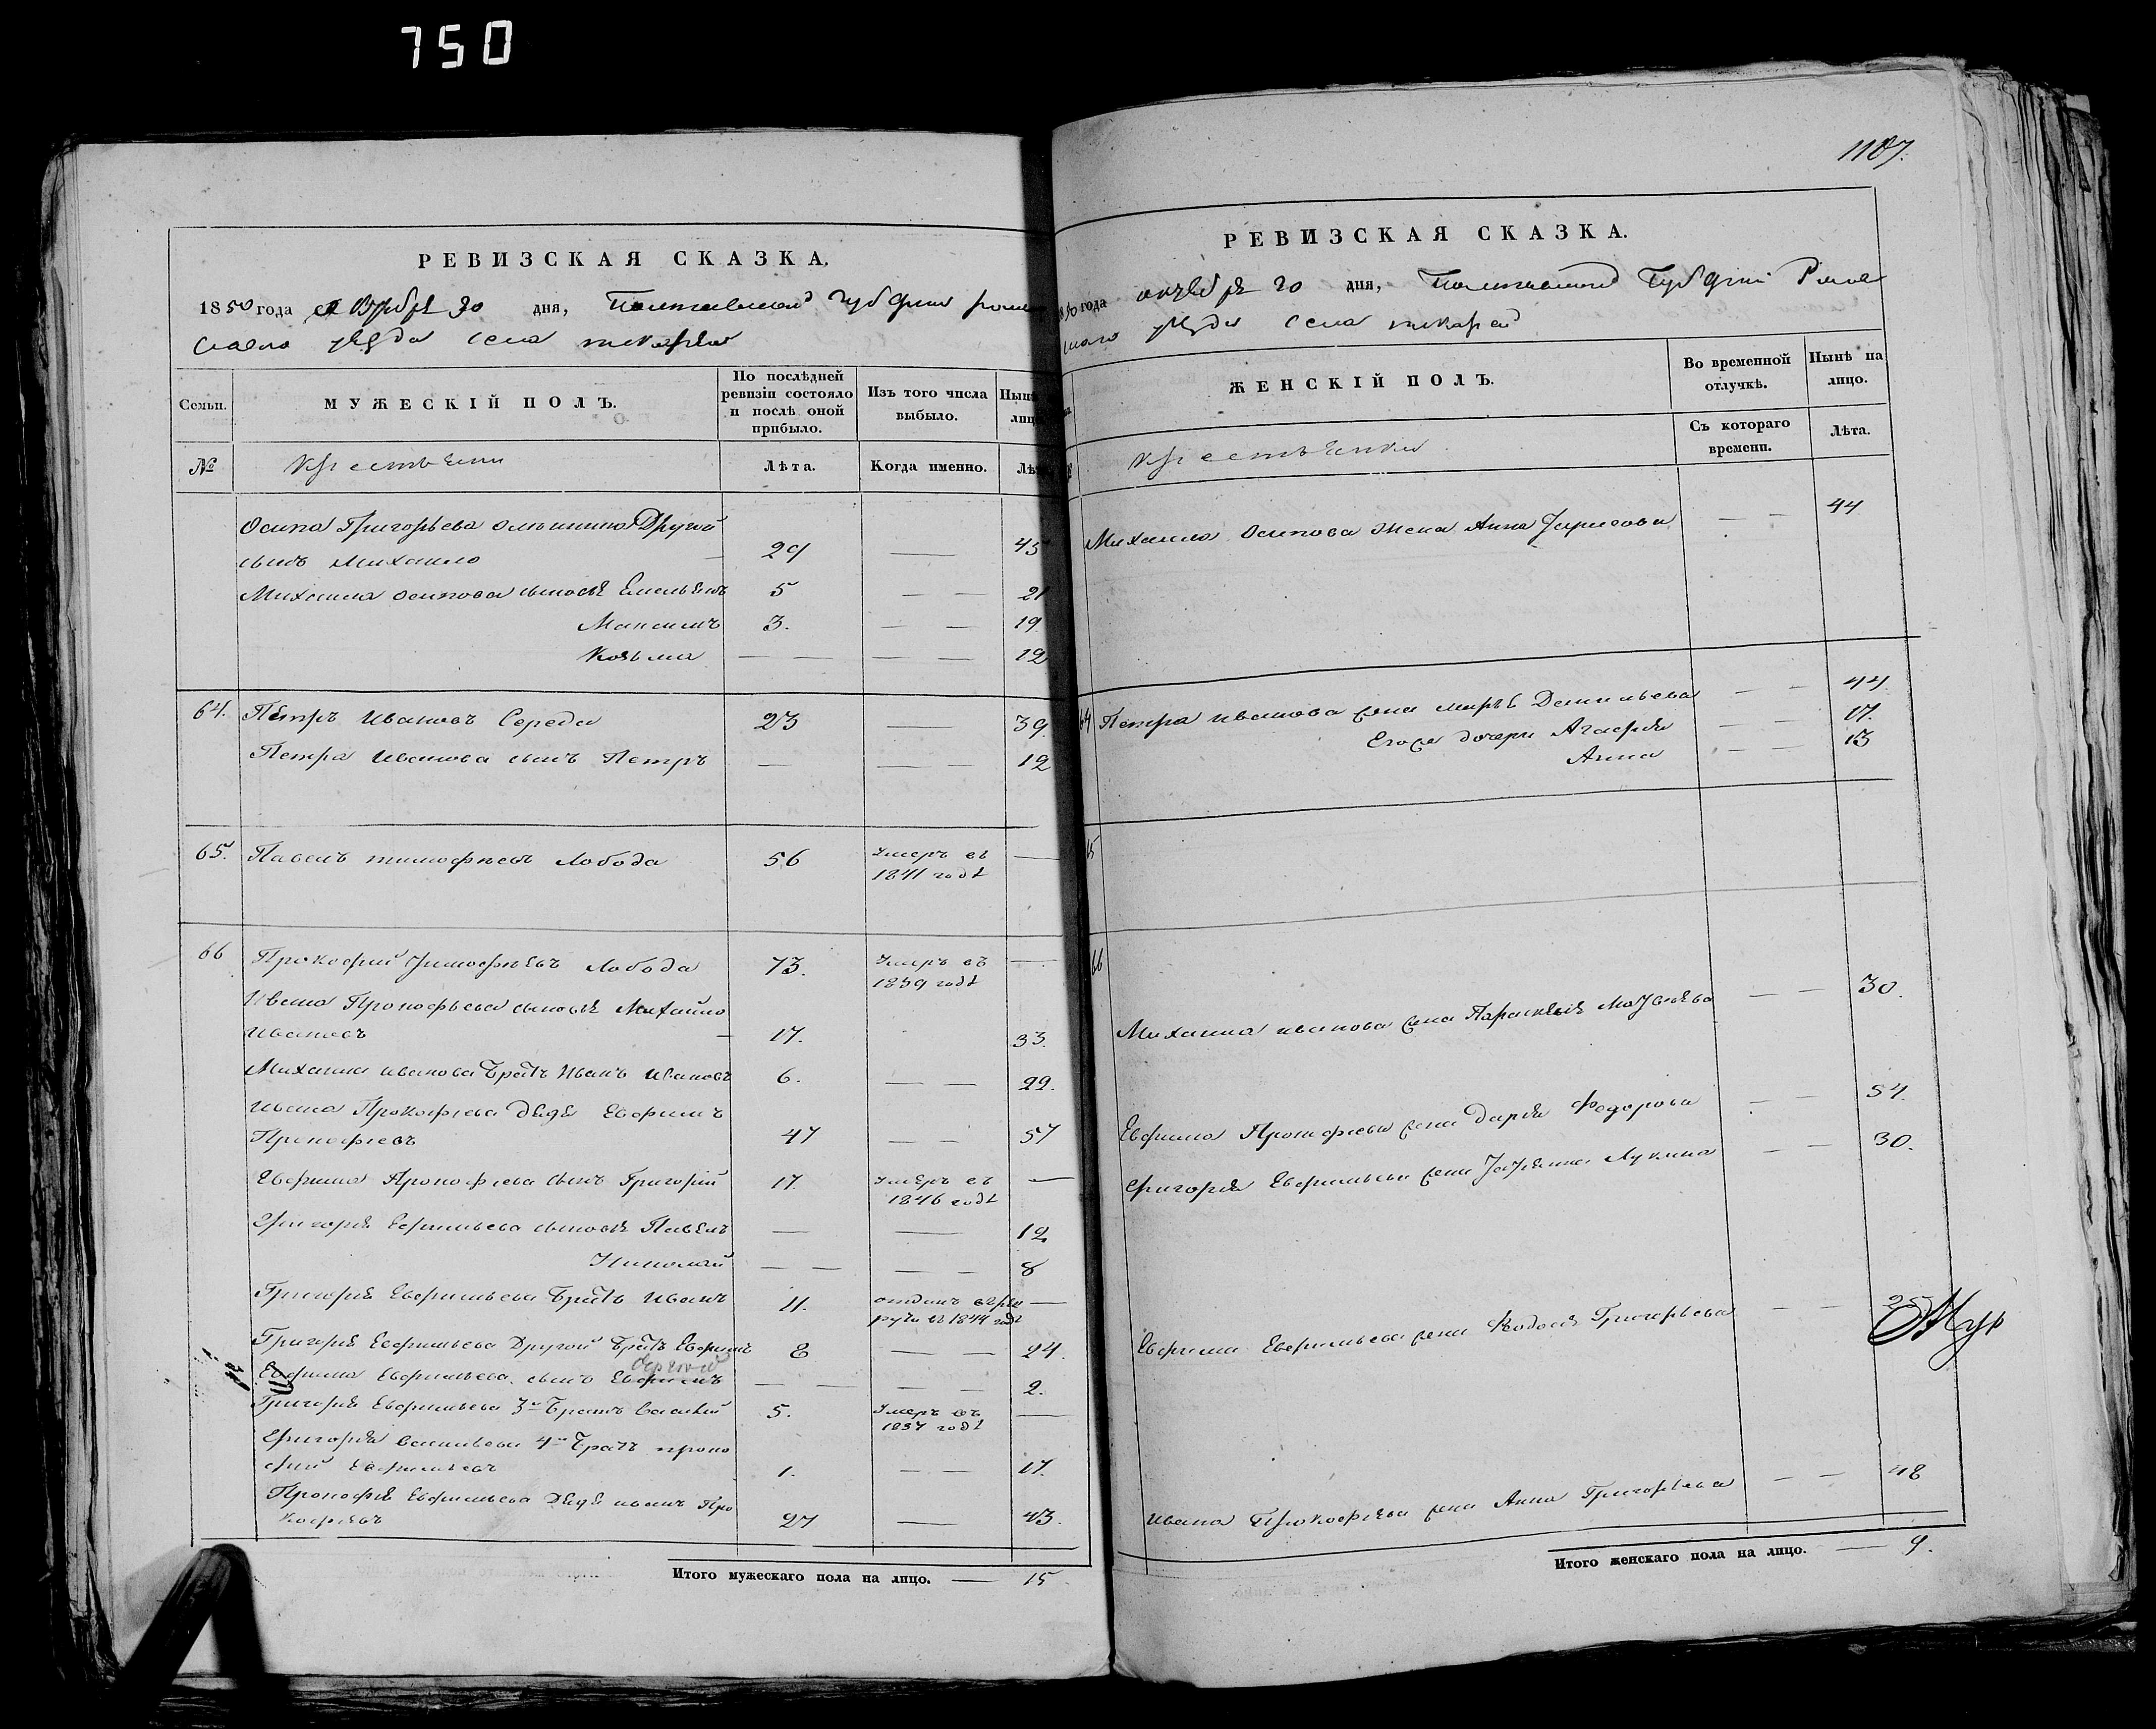 750
РЕВИЗСКАЯ СКАЗКА.
1850 года октября 20 дня, Полтавской губернiи
уѣзда села
Семьи.
МУЖЕСКIЙ ПОЛЪ.
По послѣдней ревизiи состояло и послѣ оной прибыло.
Изъ того числа выбыло.
Нынѣ лиц
№
Крестьяни
Лѣта.
Когда именно.
Лѣ
Осипа Григорьева Другой
сынъ Михайло — 29 — 45
Михаила Осипова сыновья Емельянъ 5 — — 21
Максимъ 3. — — 19
Козьма — — — — 12
64. Петръ Ивановъ Середа 23 — 39.
Петра Иванова сынъ Петръ — — — 12
65. Павелъ Тимофеевъ Лобода 56 Умеръ въ —
1841 годѣ
66 Прокофий Тимофѣевъ Лобода 73. Умеръ въ —
1839 годѣ
Ивана Прокофьева сыновья Михайло
Ивановъ — 17. 33.
Михаила Иванова Братъ Иванъ Ивановъ 6. — — 22.
Ивана Прокофьева дядя Евфимъ
Прокофьевъ 47 — — 57
Евфима Прокофьева сынъ Григорiй 17. Умеръ въ —
1846 годѣ
Григорiя Евфимьева сыновья Павелъ — — 12
Николай — — — — 8
Григорiя Евфимьева Братъ Иванъ 11. отданъ въ рек —
руты въ 1844 годѣ
Григорiя Евфимьева Другой Братъ Евфимъ 8 — — 24.
Евфима Евфимьева сынъ Евфимъ — — — — 2.
Григорiя Евфимьева 3й Братъ Василiй 5. Умеръ въ —
1837 годѣ
Григорiя 4й Братъ Проко
фий Евфимьевъ 1. — — 17.
Прокофiя Евфимьева дядя Иванъ Про
кофьевъ 27 — 43.
Итого мужескаго пола на лицо. — 15
1107.
РЕВИЗСКАЯ СКАЗКА.
года октября 20 дня, Полтавской Губернiи
уѣзда села
ЖЕНСКIЙ ПОЛЪ.
Во временной отлучкѣ.
Нынѣ на лицо.
Крестьянки
Съ котораго времени.
Лѣта.
Михаила Осипова жена Анна — — 44
64 Петра Иванова жена Данильева — — 44.
Его дочери Агафiя — — 17.
Анна — — 13
66
Михаила Иванова жена Параскевiя — — 30.
Евфима Прокофьева жена Дарiя Федорова — — 54.
Григорiя Евфимьева жена Лукина — — 30.
Евфима Евфимьева жена Феодосiя Григорьева — —
Ивана Прокофьева жена Анна Григорьева — — 48
Итого женскаго пола на лицо. — 9.